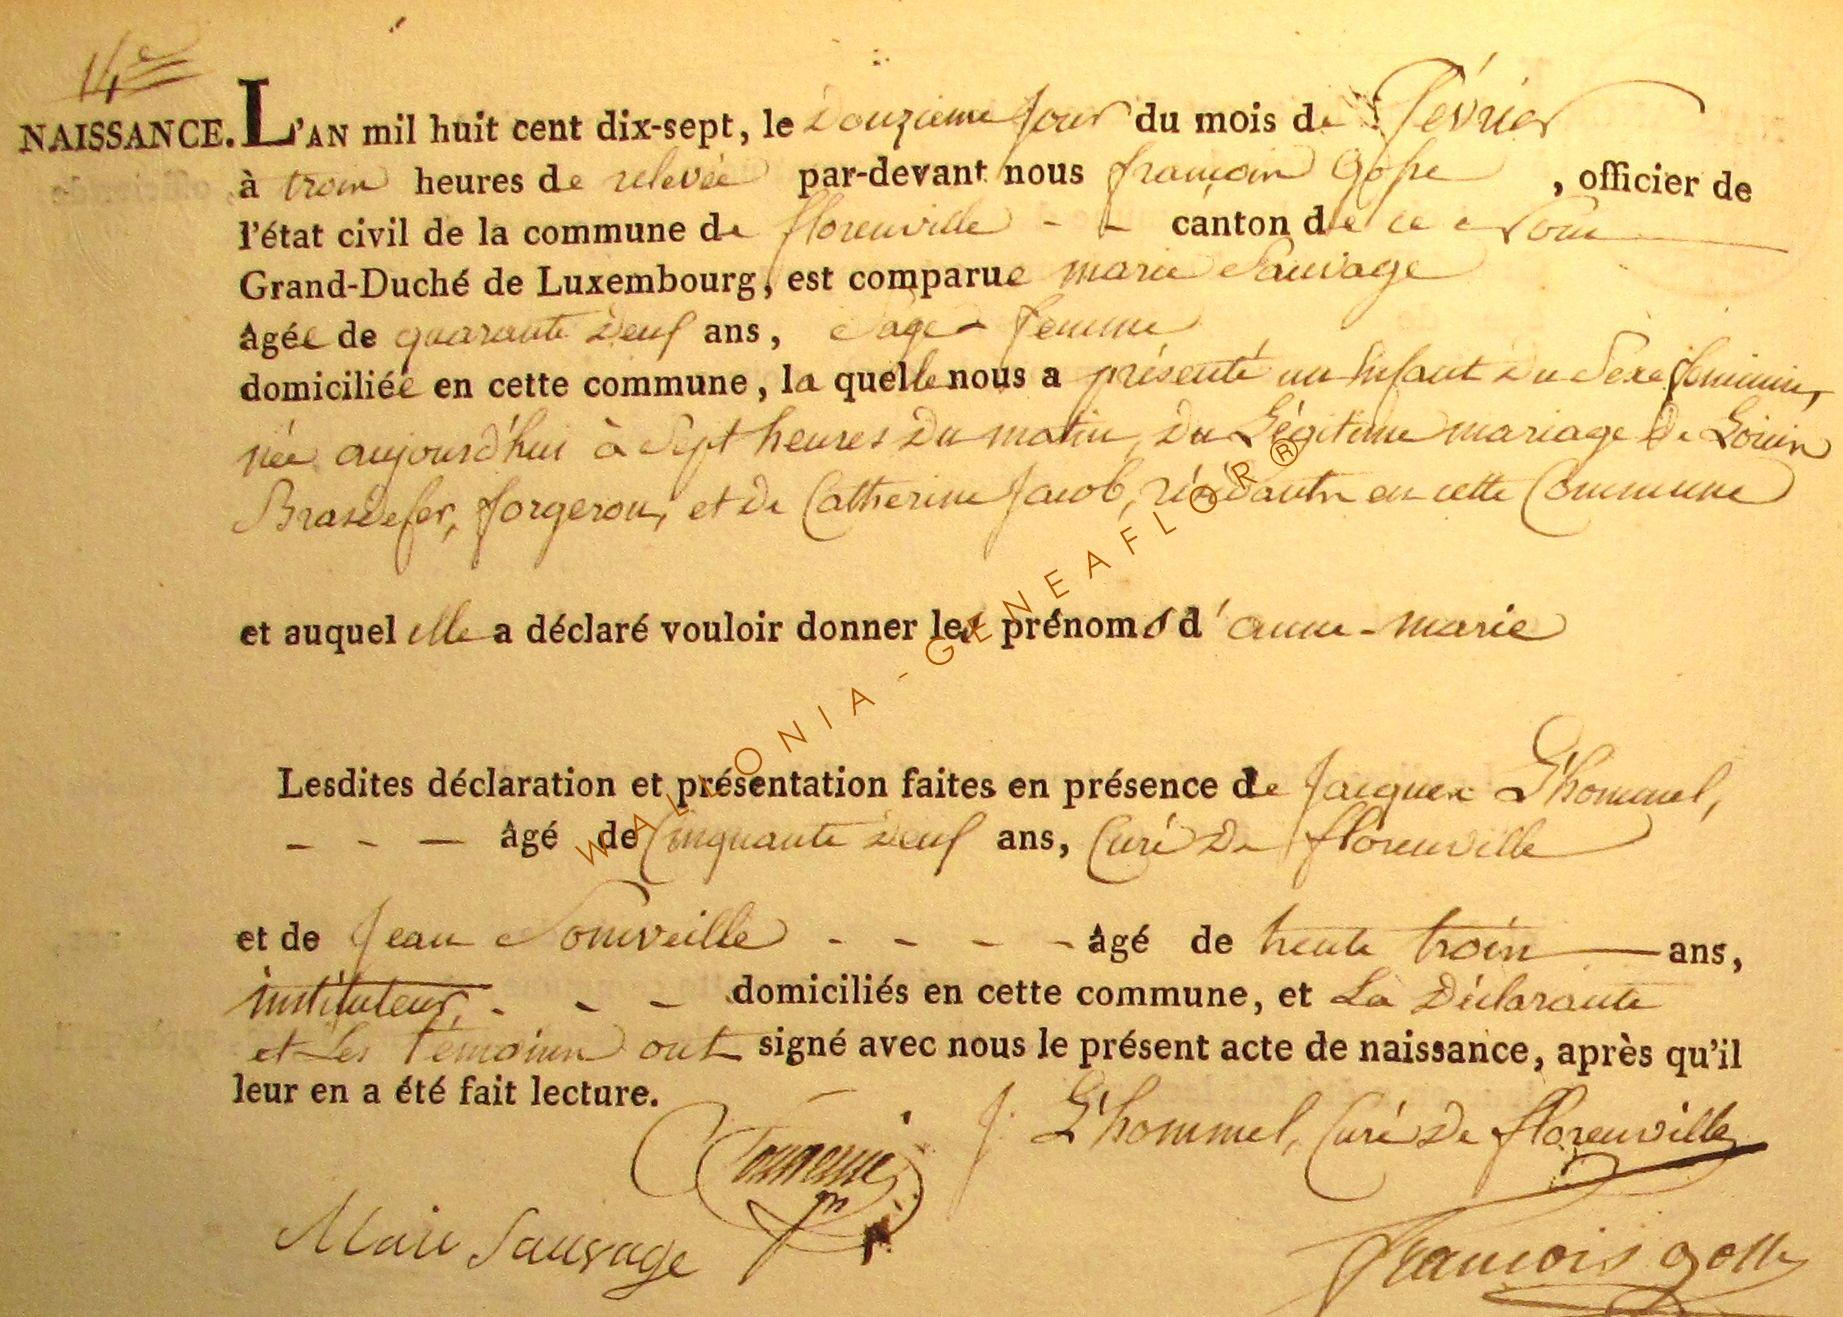 14e
NAISSANCE. L'AN mil huit cent dix-sept, le douzieme jour du mois de février
à trois heures de relevée par-devant nous françois Gosse, officier de
l'état civil de la commune de florenville - - canton de ce nom
Grand-Duché de Luxembourg, est comparue marie Sauvage
âgée de quarante deux ans, Sage-femme
domiciliée en cette commune, la quelle nous a présenté un Enfant du Sexe féminin,
née aujourd'hui à Sept heures du matin, du Légitime mariage de Louis
Brasdefer, forgeron, et de Catherine Jacob, résidants en cette Commune
et auquel elle a déclaré vouloir donner les prénoms d'anne-marie
Lesdites déclaration et présentation faites en présence de Jacques L'hommel,
- - - âgé de Cinquante deux ans, Curé de florenville
et de Jean - - - - âgé de trente trois ans,
instituteur, - - - domiciliés en cette commune, et La Déclarante
et Les Témoins ont signé avec nous le présent acte de naissance, après qu'il
leur en a été fait lecture.
J. L'hommel, Curé de florenville
Marie Sauvage
françois gosse
WALLONIA-GENEAFLOR®